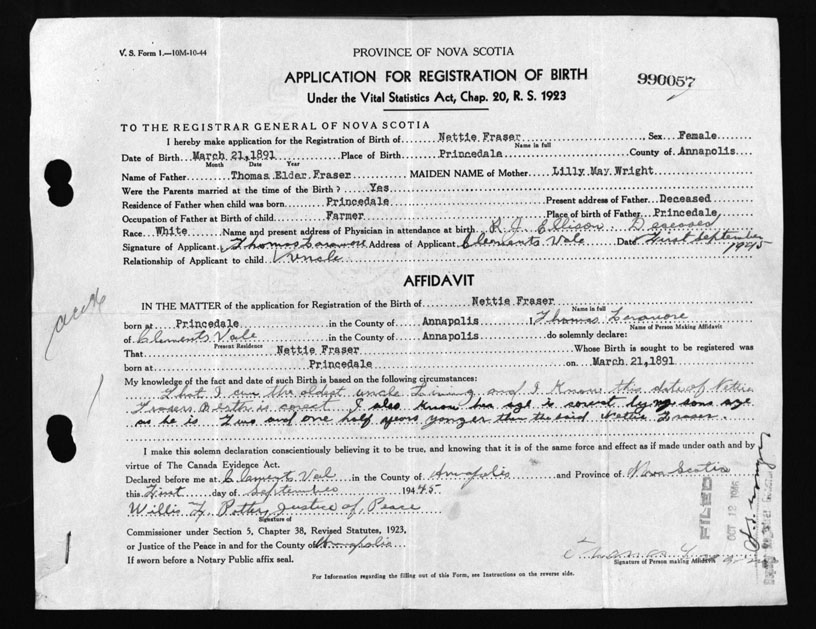 V. S. Form 1.—10M-10-44
PROVINCE OF NOVA SCOTIA
APPLICATION FOR REGISTRATION OF BIRTH
990057
Under the Vital Statistics Act, Chap. 20, R. S. 1923
TO THE REGISTRAR GENERAL OF NOVA SCOTIA
I hereby make application for the Registration of Birth of Nettie Fraser Sex Female
Name in full
Date of Birth March 21, 1891 Place of Birth Princedale County of Annapolis
Month Date Year
Name of Father Thomas Elder Fraser MAIDEN NAME of Mother Lilly May Wright
Were the Parents married at the time of the Birth? Yes
Residence of Father when child was born Princedale Present address of Father Deceased
Occupation of Father at Birth of child Farmer Place of birth of Father Princedale
Race White Name and present address of Physician in attendance at birth R. J. Ellison. Deseased
Signature of Applicant Thomas Address of Applicant Clements Vale Date First September
1945
Relationship of Applicant to child Uncle
AFFIDAVIT
IN THE MATTER of the application for Registration of the Birth of Nettie Fraser
Name in full
born at Princedale in the County of Annapolis I Thomas
Name of Person Making Affidavit
of Clements Vale in the County of Annapolis do solemnly declare:
Present Residence
That Nettie Fraser Whose Birth is sought to be registered was
born at Princedale on March 21, 1891
My knowledge of the fact and date of such Birth is based on the following circumstances:
That I am the oldest uncle Living and I Know this date of Nettie
Frasers Berth is corect I also know her age is by my sons age
as he is Two and one half years yonger then the said Nettie Fraser.
I make this solemn declaration conscientiously believing it to be true, and knowing that it is of the same force and effect as if made under oath and by
virtue of The Canada Evidence Act.
Declared before me at Clements Vale in the County of Annapolis and Province of Nova Scotia
this First day of September 194 45
Willis L. Potter, Justice of Peace
Signature of
Commissioner under Section 5, Chapter 38, Revised Statutes, 1923,
or Justice of the Peace in and for the County of Annapolis
If sworn before a Notary Public affix seal.
Signature of Person making Affidavit
FILED
OCT 12 1945
For Information regarding the filling out of this Form, see Instructions on the reverse side.